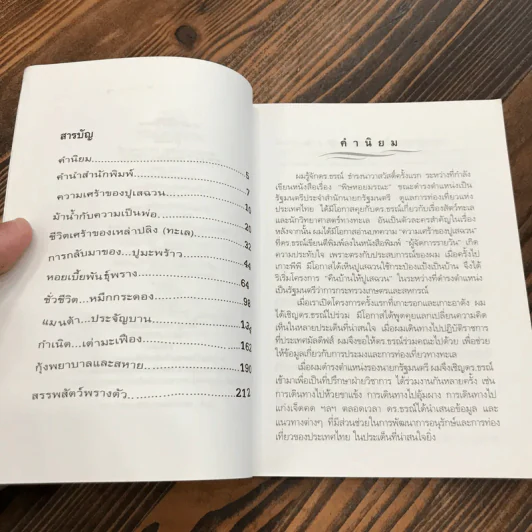 สารบัญ
คำนิยม 5
คำนำสำนักพิมพ์ 7
ความเศร้าของปูเสฉวน 10
ม้าน้ำกับความเป็นพ่อ 20
ชีวิตเศร้าของเหล่าปลิง (ทะเล) 32
การกลับมาของ...ปูมะพร้าว 44
หอยเบี้ยพันธุ์พราง 64
ชั่วชีวิต...หมึกกระดอง 98
แมนต้า...ประจัญบาน
กำเนิด...เต่ามะเฟือง 162
กุ้งพยาบาลและสหาย 190
สรรพสัตว์พรางตัว 212
คำนิยม
ผมรู้จักดร.ธรณ์ ธำรงนาวาสวัสดิ์ครั้งแรก ระหว่างที่กำลัง
เขียนหนังสือเรื่อง "พิษหอยมรณะ" ขณะดำรงตำแหน่งเป็น
รัฐมนตรีประจำสำนักนายกรัฐมนตรี ดูแลการท่องเที่ยวแห่ง
ประเทศไทย ได้มีโอกาสคุยกับดร.ธรณ์เกี่ยวกับเรื่องสัตว์ทะเล
และนักวิทยาศาสตร์ทางทะเล อันเป็นตัวละครสำคัญในเรื่อง
หลังจากนั้น ผมได้มีโอกาสอ่านบทความ "ความเศร้าของปูเสฉวน"
ที่ดร.ธรณ์เขียนตีพิมพ์ลงในหนังสือพิมพ์ "ผู้จัดการรายวัน" เกิด
ความประทับใจ เพราะตรงกับประสบการณ์ของผม เมื่อครั้งไป
เกาะพีพี มีโอกาสได้เห็นปูเสฉวนใช้กระป๋องแป้งเป็นบ้าน จึงได้
ริเริ่มโครงการ "คืนบ้านให้ปูเสฉวน" ในระหว่างที่ดำรงตำแหน่ง
เป็นรัฐมนตรีว่าการกระทรวงเกษตรและสหกรณ์
เมื่อเราเปิดโครงการครั้งแรกที่เกาะรอกและเกาะอาดัง ผม
ได้เชิญดร.ธรณ์ไปร่วม มีโอกาสได้พูดคุยแลกเปลี่ยนความคิด
เห็นในหลายประเด็นที่น่าสนใจ เมื่อผมเดินทางไปปฏิบัติราชการ
ที่ประเทศมัลดีฟส์ ผมจึงขอให้ดร.ธรณ์ร่วมคณะไปด้วย เพื่อช่วย
ให้ข้อมูลเกี่ยวกับการประมงและการท่องเที่ยวทางทะเล
เมื่อผมดำรงตำแหน่งรองนายกรัฐมนตรี ผมจึงเชิญดร.ธรณ์
เข้ามาเพื่อเป็นที่ปรึกษาฝ่ายวิชาการ ได้ร่วมงานกันหลายครั้ง เช่น
การเดินทางไปห้วยขาแข้ง การเดินทางไปอุ้มผาง การเดินทางไป
แก่งเจ็ดคด ฯลฯ ตลอดเวลา ดร.ธรณ์ได้นำเสนอข้อมูล และ
แนวทางต่างๆ ที่มีส่วนช่วยในการพัฒนาการอนุรักษ์และการท่อง
เที่ยวของประเทศไทย ในประเด็นที่น่าสนใจยิ่ง